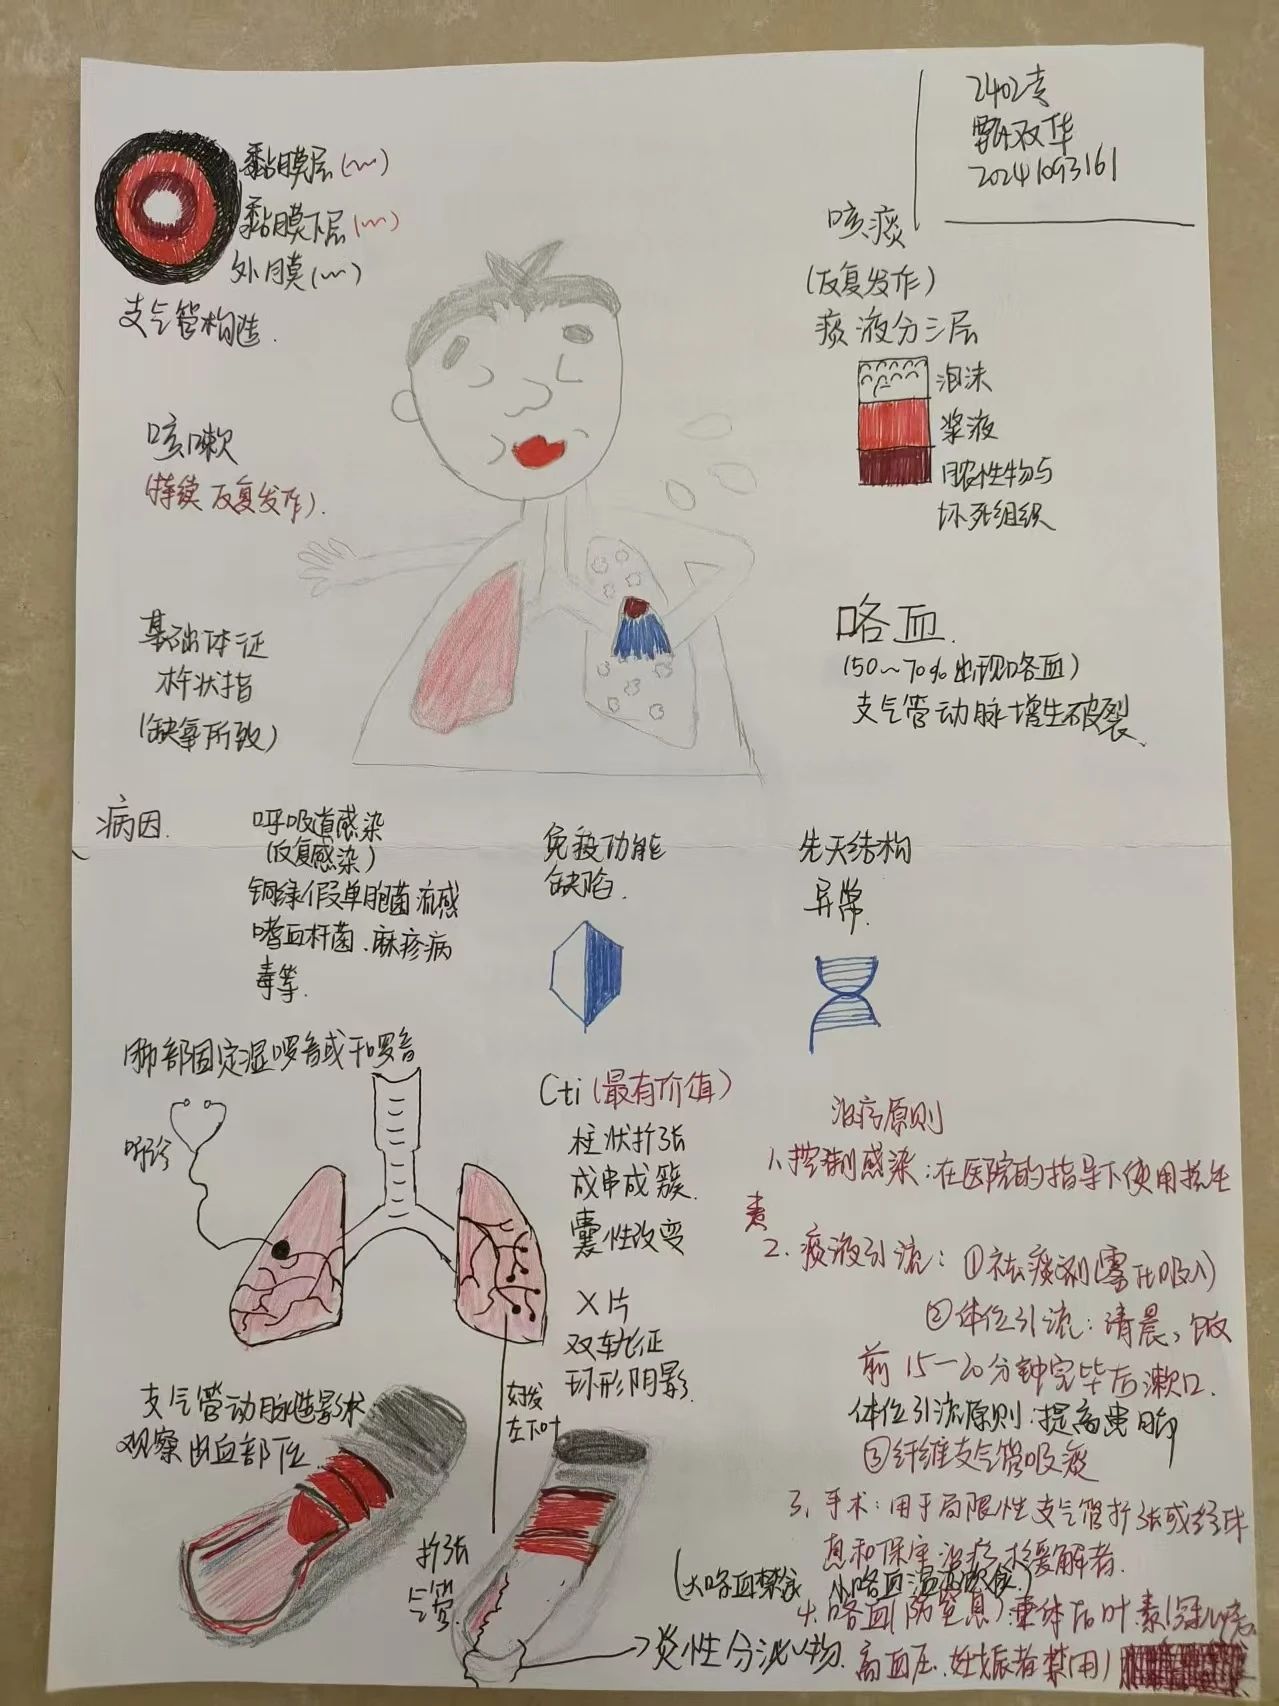 2402专
甄双华
2024093161
黏膜层(~~)
黏膜下层(~~)
外膜(~~)
支气管构造.
咳嗽
(持续反复发作).
基础体征
杵状指
(缺氧所致)
咳痰
(反复发作)
痰液分三层
泡沫
浆液
脓性物与
坏死组织
咯血.
(50~70%出现咯血)
支气管动脉增生破裂.
病因.
呼吸道感染
(反复感染)
铜绿假单胞菌流感
嗜血杆菌.麻疹病
毒等.
免疫功能
缺陷.
先天结构
异常.
肺部固定湿啰音或干啰音
听诊
Cti(最有价值)
柱状扩张
成串成簇.
囊性改变
X片
双轨征
环形阴影.
好发
左下叶
支气管动脉造影术
观察出血部位.
扩张
气管.
→炎性分泌物.
治疗原则
1.控制感染:在医院的指导下使用抗生
素
2.痰液引流:①祛痰剂(雾化吸入)
②体位引流:清晨,饭
前15-20分钟完毕后漱口.
体位引流原则:提高患肺
③纤维支气管吸痰
3.手术:用于局限性支气管扩张或经休
息和保守治疗不缓解者.
(大咯血禁食 小咯血温凉饮食)
4.咯血(防窒息):垂体后叶素(冠心病.
高血压.妊娠者禁用)